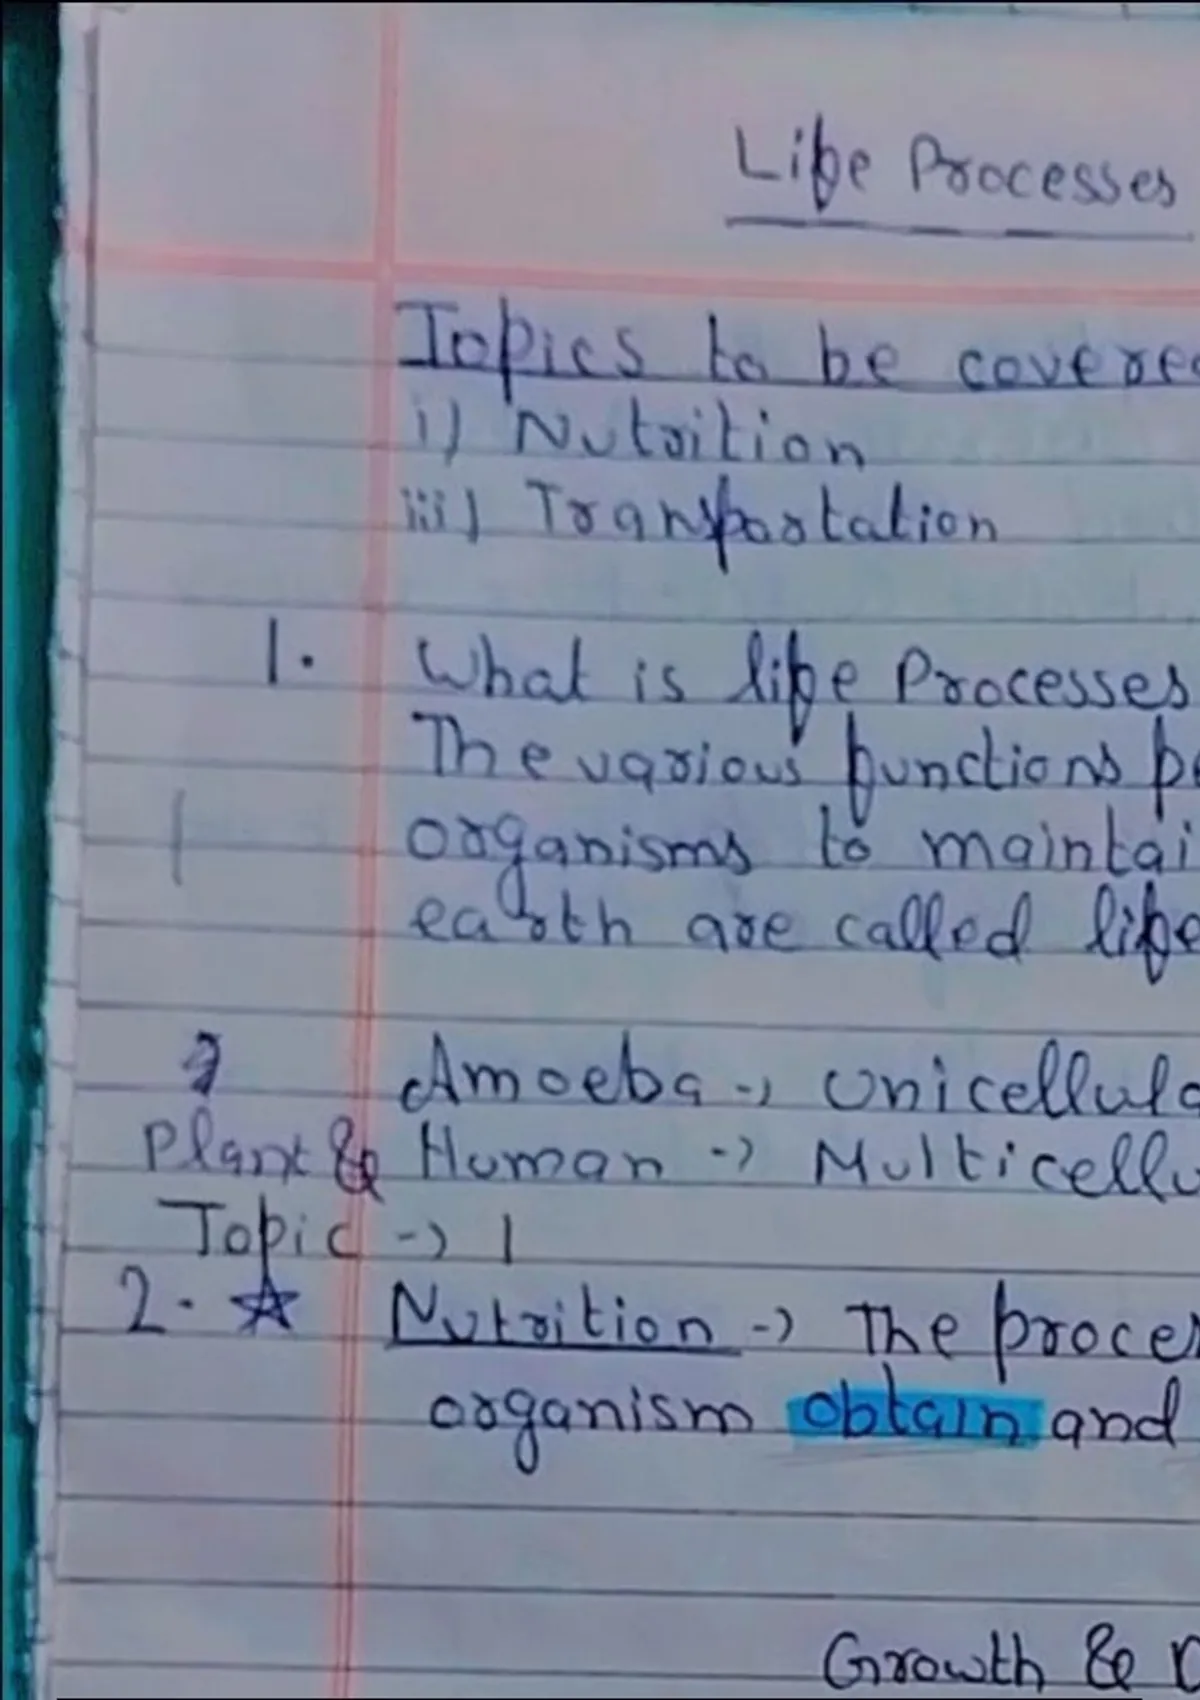 Life Processes
Topics to be covere
i) Nutrition
iii) Transportation
1. What is life Processes
The various functions pe
organisms to maintai
earth are called life
Amoeba -> Unicellula
Plant & Human -> Multicellu
Topic -> 1
2. ☆ Nutrition -> The proces
organism obtain and
Growth & D